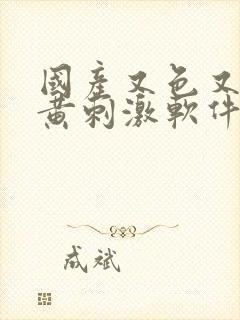 國產又色又
黃刺激軟件
成斌